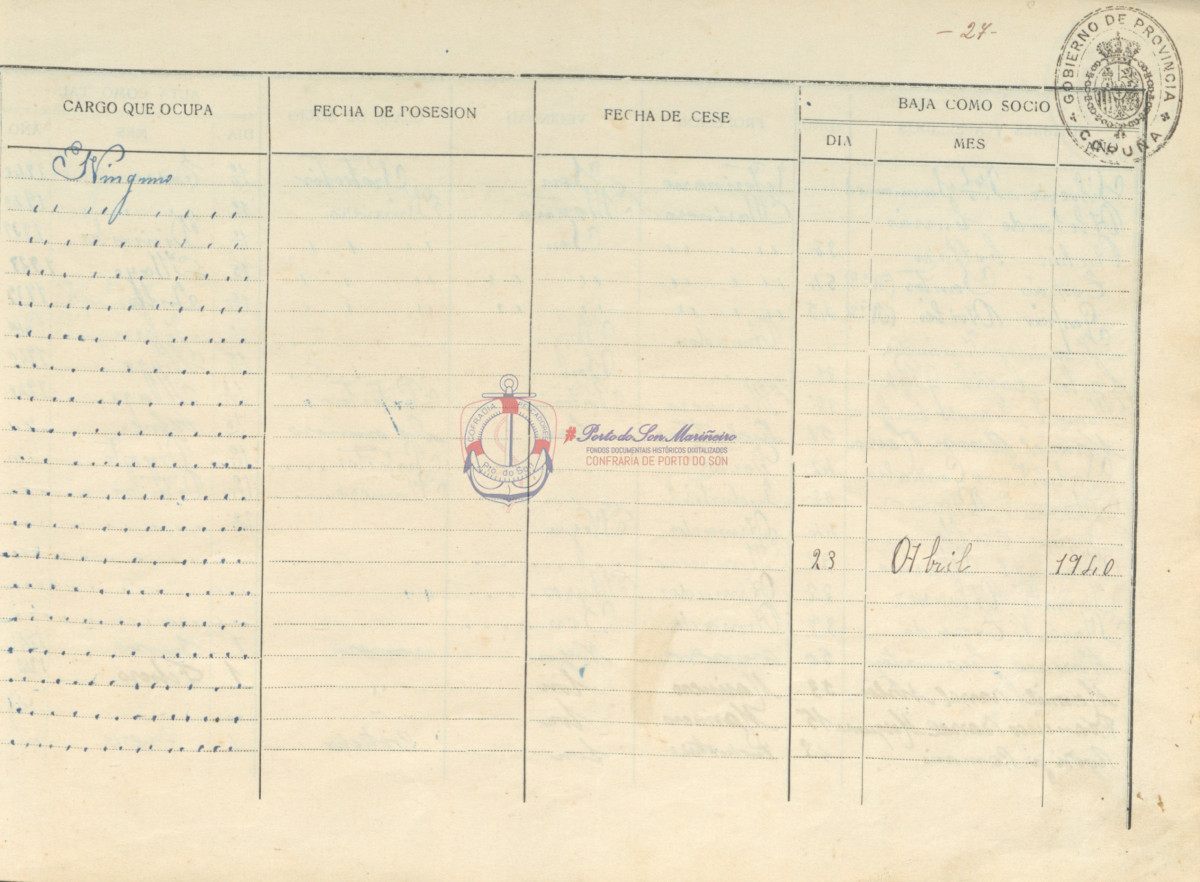 - 27 -
GOBIERNO DE PROVINCIA
CORUÑA
CARGO QUE OCUPA
FECHA DE POSESION
FECHA DE CESE
BAJA COMO SOCIO
DIA
MES
Ninguno
COFRADIA PESCADORES
Pto. do Son
#Porto do Son Mariñeiro
FONDOS DOCUMENTAIS HISTÓRICOS DIGITALIZADOS
CONFRARÍA DE PORTO DO SON
23 Abril 1940